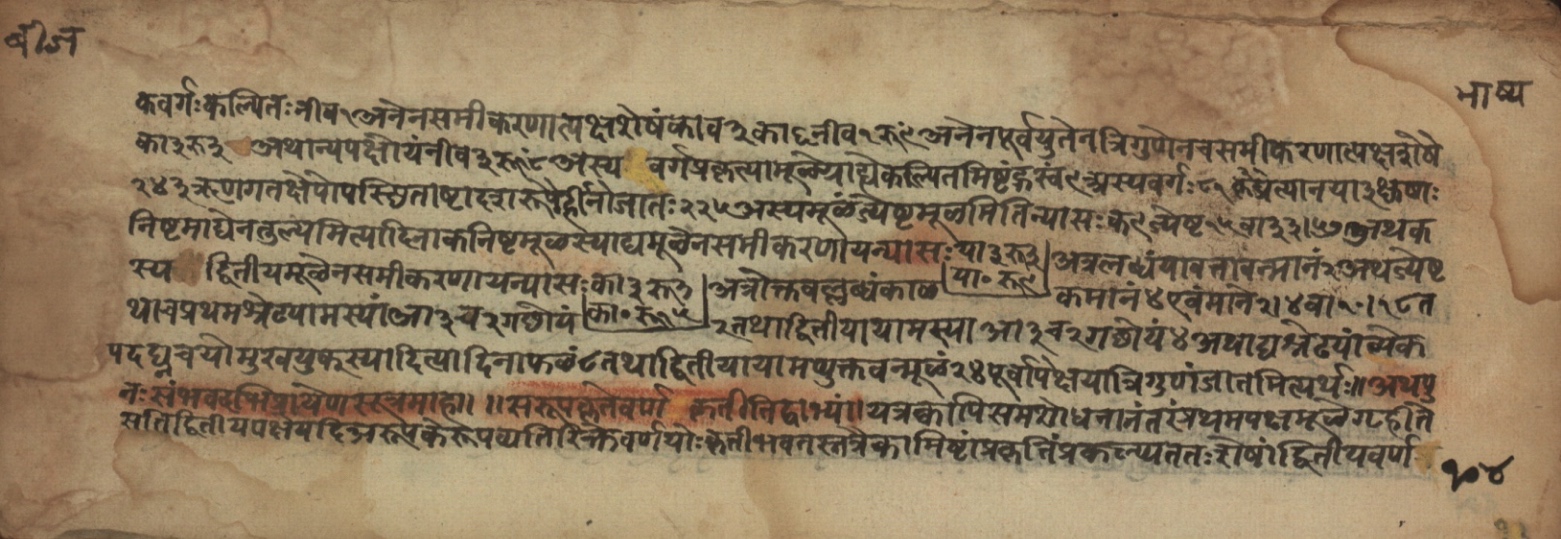 बीज
भाष्य
कवर्गः कल्पितः नीव १ अनेन समीकरणात्पक्षशेषं काव ३ का ६ नीव १ रू ९ अनेन पूर्वयुतेन त्रिगुणेन च समीकरणात्पक्षशेषे
का ३ रू ३ अथान्यपक्षोयं नीव ३ रू ८ अस्य वर्गप्रकृत्या मूळे कल्पितमिष्टं ह्रस्वं ९ अस्य वर्गः ८१
२४३ ऋणगतक्षेपो अष्टादश रूपै जातः २२५ अस्य मूळं ज्येष्टमूळमिति न्यासः क ९ ज्येष्ट १५ वा ३३। ५७ अथ क
निष्टमाद्येन तुल्यमित्यादिना कनिष्टमूळस्याद्यमूळेन समीकरणाय न्यासः या ३ रू ३ अत्र लब्धं यावत्तावन्मानं २ अथ ज्येष्ट
या ० रू ९
स्य द्वितीयमूळेन समीकरणाय न्यासः का ३ रू ३ अत्रोक्तवल्लब्धं काळ कमानं ४ एवं माने २। ४ वा १०। १८ त
का ० रू १५
था च प्रथमश्रेढ्यामस्यां आ ३ च २ गछोयं २ तथा द्वितीयायामस्या आ ३ च २ गछोयं ४ अथाद्यश्रेढ्यां व्येक
पदघ्नचयो मुखयुक् स्यादित्यादिना फळं ८ तथा द्वितीयायामप्युक्तवन्मूळं २४ पूर्वापेक्षया त्रिगुणं जातमित्यर्थः॥ अथ पु
नः संभवदभिप्रायेण सूत्रमाह॥ ॥ सरूपकृते वर्ण कृतीति द्वाभ्यां॥ यत्र क्वापि समशोधनानंतरं प्रथमपक्षमूळे गृहीते
सति द्वितीयपक्षे यदि अरूपके रूपव्यतिरिक्ते वर्णयोः कृती भवतस्तत्रैकामिष्टां प्रकृतिं प्रकल्प्य ततः शेषां द्वितीयवर्ण
१०४